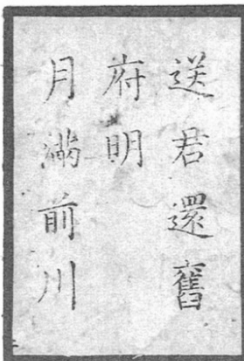 送君還舊
府明
月滿前川